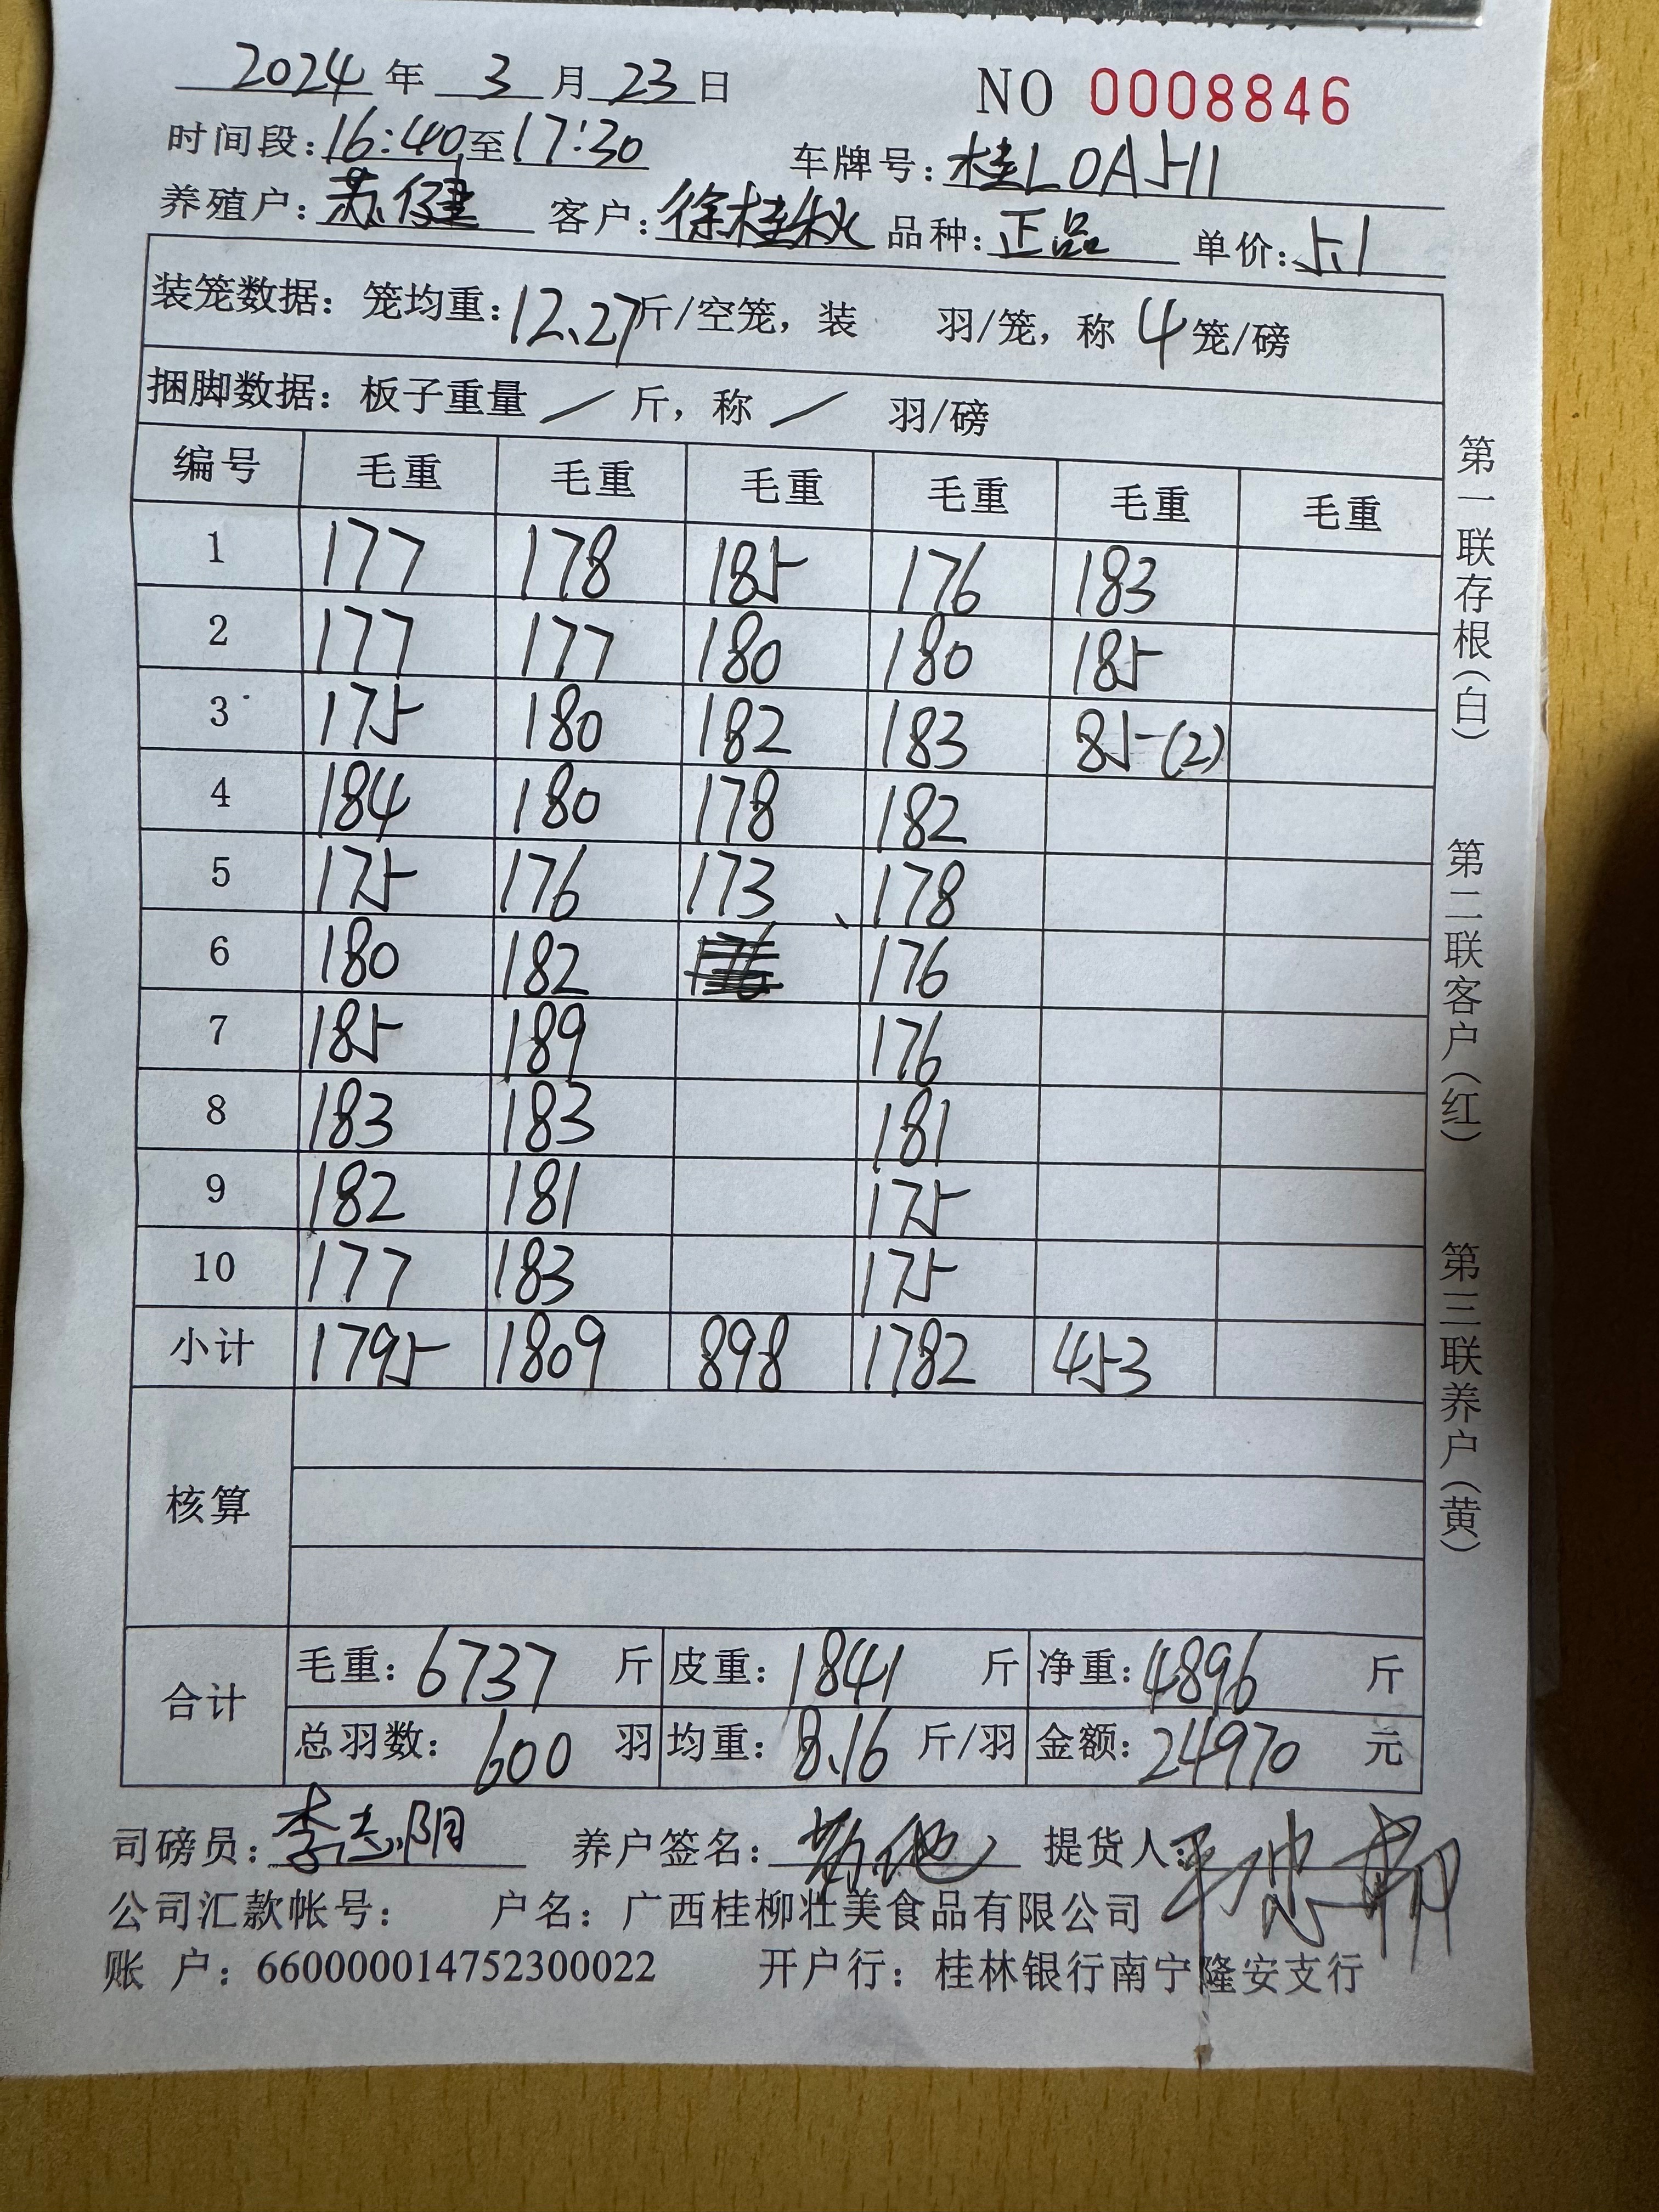 2024年 3月23日 NO 0008846
时间段:16:40至17:30 车牌号:桂L0A511
养殖户:苏健 客户:徐桂秋 品种:正品 单价:5.1
装笼数据：笼均重:12.27斤/空笼，装 羽/笼，称 4 笼/磅
捆脚数据：板子重量 / 斤，称 / 羽/磅
编号 毛重 毛重 毛重 毛重 毛重 毛重
1 177 178 185 176 183
2 177 177 180 180 185
3 175 180 182 183 85(2)
4 184 180 178 182
5 175 176 173 178
6 180 182 176
7 185 189 176
8 183 183 181
9 182 181 175
10 177 183 175
小计 1795 1809 898 1782 453
核算
合计 毛重:6737 斤 皮重:1841 斤 净重:4896 斤
总羽数:600 羽 均重:8.16 斤/羽 金额:24970 元
司磅员:李志阴 养户签名: 提货人:
公司汇款帐号： 户名：广西桂柳壮美食品有限公司
账 户：660000014752300022 开户行：桂林银行南宁隆安支行
第一联存根(白) 第二联客户(红) 第三联养户(黄)